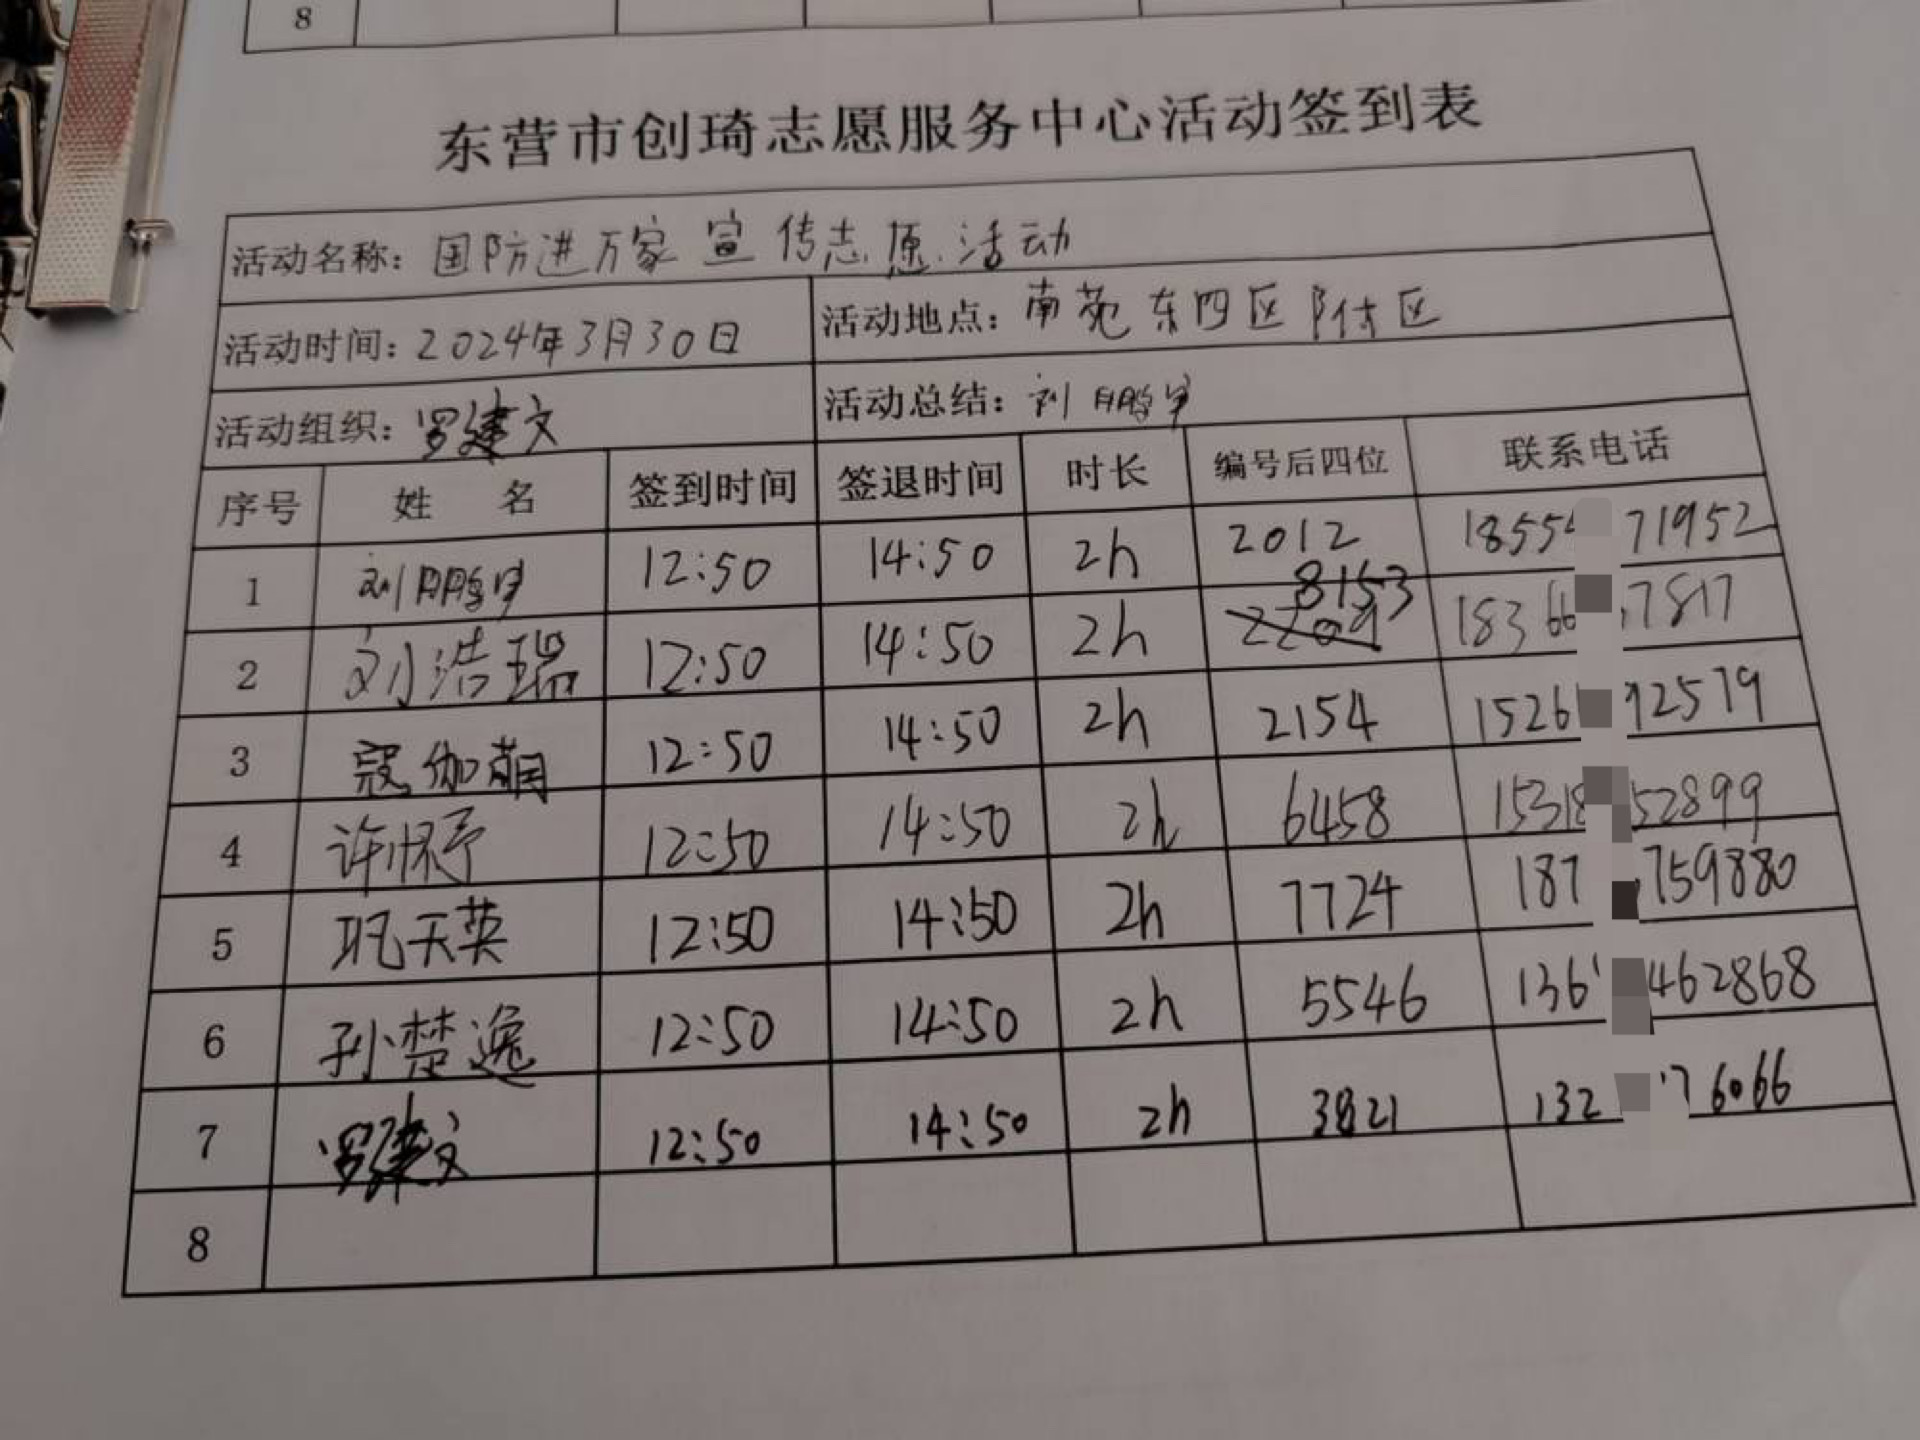 8
东营市创琦志愿服务中心活动签到表
活动名称：国防进万家宣传志愿活动
活动时间：2024年3月30日 活动地点：南苑东四区附区
活动组织：罗建文 活动总结：刘鹏
序号 姓 名 签到时间 签退时间 时长 编号后四位 联系电话
1 刘鹏 12:50 14:50 2h 2012 1855 71952
2 刘浩瑞 12:50 14:50 2h 8153 18366 7817
3 寇伽萌 12:50 14:50 2h 2154 1526 92579
4 许怀予 12:50 14:50 2h 6458 15318 52899
5 巩天英 12:50 14:50 2h 7724 187 759880
6 孙楚逸 12:50 14:50 2h 5546 136 462868
7 罗建文 12:50 14:50 2h 3821 132 76066
8